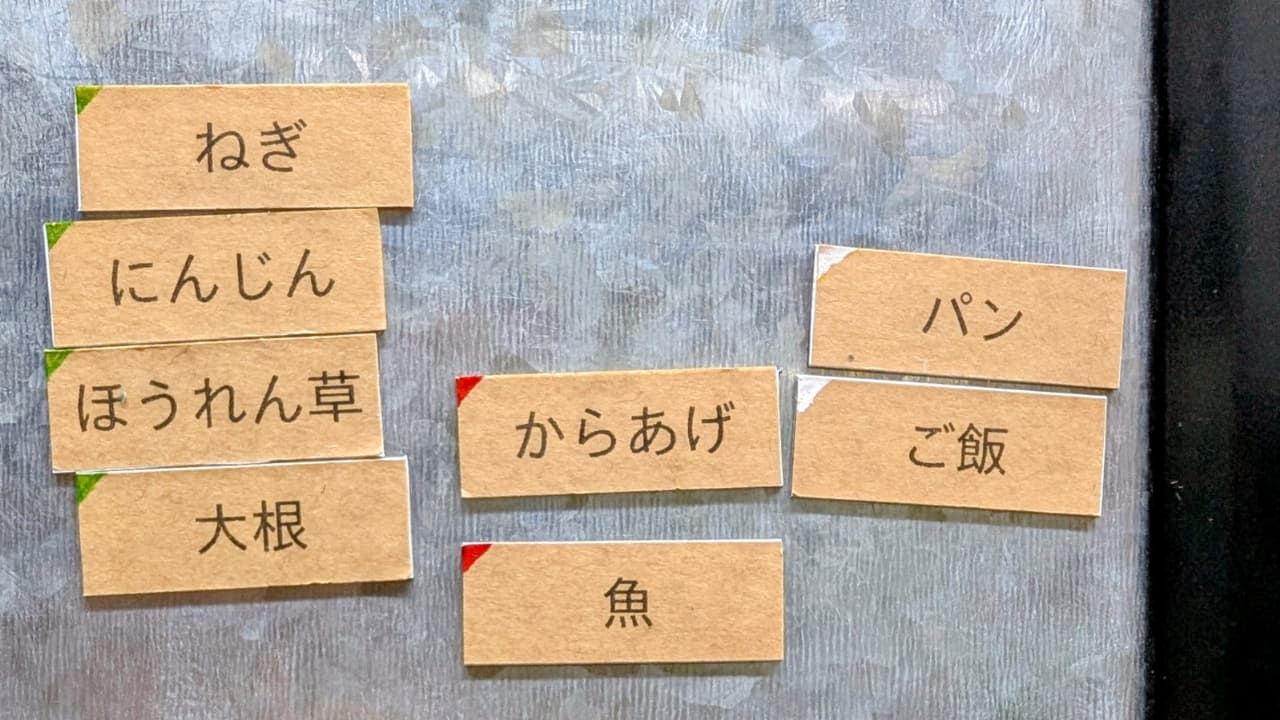 ねぎ
にんじん
ほうれん草
大根
からあげ
魚
パン
ご飯